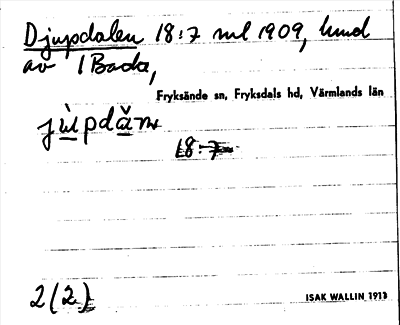 Djupdalen 18:7 ml 1909, hmd
av 1 Bada,
Fryksände sn, Fryksdals hd, Värmlands län
18:7
2(2)
ISAK WALLIN 1913